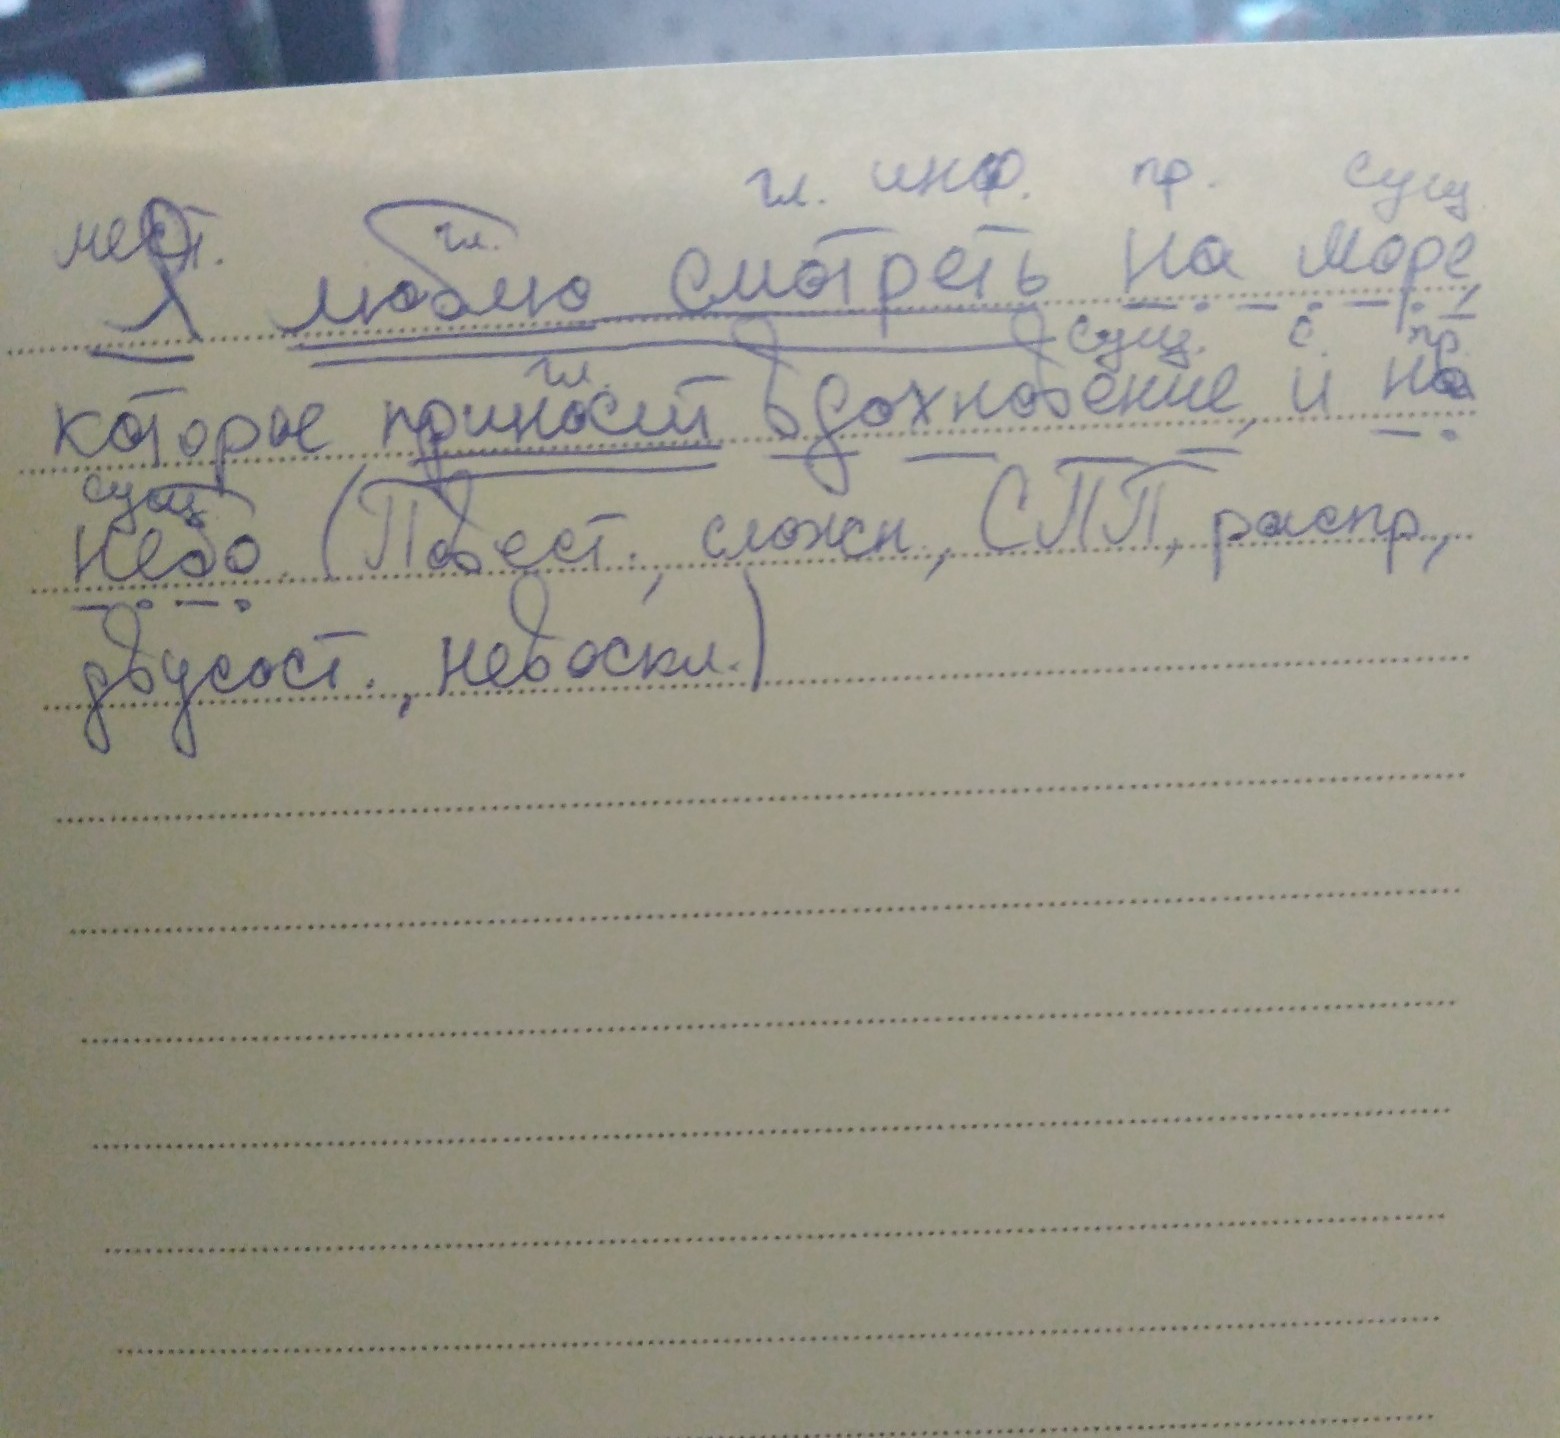 гл. инф. пр. сущ.
мест. гл.
Я люблю смотреть на море,
сущ. с. пр.
гл.
которое приносит вдохновение, и на
сущ.
небо. (Повест., сложн., СПП, распр.,
двусост., невоскл.)